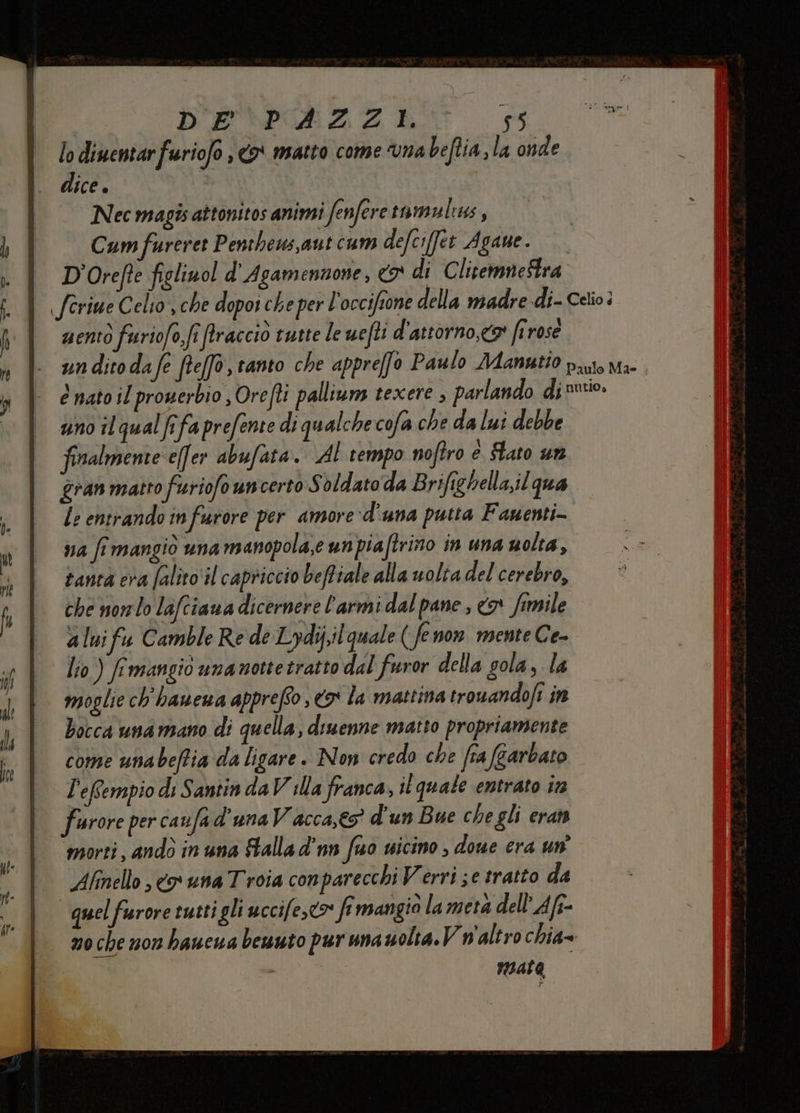 DE' PAZZI. 55
lo diuentar furioſo, & matto come vna beſtia, la onde
dice.
Nec magis attonitos animi ſenſere tumultus,
Cum fureret Pentheus, aut cum deſciſſet Agaue.
D'Oreſte figliuol d'Agamennone, & di Clitemneſtra
ſcriue Celio, che dopoi che per l'occiſione della madre di- Celio:
uentò furioſo, ſi ſtracciò tutte le ueſti d'attorno, & ſi rosè
un dito da ſe ſteſſo, tanto che appreſſo Paulo Manutio Paulo Ma-
è nato il prouerbio, Oreſti pallium texere, parlando di nutio.
uno il qual ſi fa preſente di qualche coſa che da lui debbe
finalmente eſſer abuſata. Al tempo noſtro è ſtato un
gran matto furioſo un certo Soldato da Briſighella, il qua
le entrando in furore per amore d'una putta Fauenti-
na ſi mangiò una manopola, e un piaſtrino in una uolta,
tanta era ſalito il capriccio beſtiale alla uolta del cerebro,
che non lo laſciaua dicernere l'armi dal pane, & ſimile
a lui fu Camble Re de Lydij, il quale (ſe non mente Ce-
lio) ſi mangiò una notte tratto dal furor della gola, la
moglie ch'haueua appreſſo, & la mattina trouandoſi in
bocca una mano di quella, diuenne matto propriamente
come una beſtia da ligare. Non credo che ſia ſgarbato
l'eſſempio di Santin da Villa franca, il quale entrato in
furore per cauſa d'una Vacca, & d'un Bue che gli eran
morti, andò in una ſtalla d'un ſuo uicino, doue era un'
Aſinello, & una Troia con parecchi Verri; e tratto da
quel furore tutti gli ucciſe, & ſi mangiò la metà dell'Aſi-
no che non haueua beuuto pur una uolta. Vn'altro chia-
mato